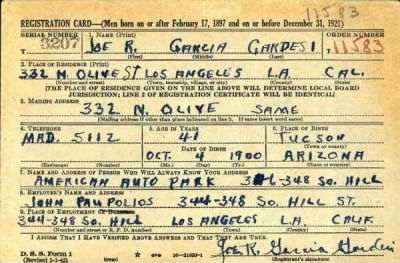 11583
REGISTRATION CARD—(Men born on or after February 17, 1897 and on or before December 31, 1921)
SERIAL NUMBER 1. NAME (Print) ORDER NUMBER
3207 JOE R. GARCIA GARDESI 11583
(First) (Middle) (Last)
2. PLACE OF RESIDENCE (Print)
332 N. OLIVE ST LOS ANGELES L.A. CAL.
(Number and street) (Town, township, village, or city) (County) (State)
[THE PLACE OF RESIDENCE GIVEN ON THE LINE ABOVE WILL DETERMINE LOCAL BOARD
JURISDICTION; LINE 2 OF REGISTRATION CERTIFICATE WILL BE IDENTICAL]
3. MAILING ADDRESS
332 N. OLIVE SAME
[Mailing address if other than place indicated on line 2. If same insert word same]
4. TELEPHONE 5. AGE IN YEARS 6. PLACE OF BIRTH
MAD. 5112 41 TUCSON
DATE OF BIRTH (Town or county)
OCT 4 1900 ARIZONA
(Exchange) (Number) (Mo.) (Day) (Yr.) (State or country)
7. NAME AND ADDRESS OF PERSON WHO WILL ALWAYS KNOW YOUR ADDRESS
AMERICAN AUTO PARK 346-348 SO. HILL
8. EMPLOYER'S NAME AND ADDRESS
JOHN PAUPOLIOS 344-348 SO. HILL ST.
9. PLACE OF EMPLOYMENT OR BUSINESS
344-348 SO. HILL LOS ANGELES L.A. CALIF.
(Number and street or R. F. D. number) (Town) (County) (State)
I AFFIRM THAT I HAVE VERIFIED ABOVE ANSWERS AND THAT THEY ARE TRUE.
D. S. S. Form 1
(Revised 1-1-42) (over) 16—21630-1
Joe R. Garcia Gardesi
(Registrant's signature)